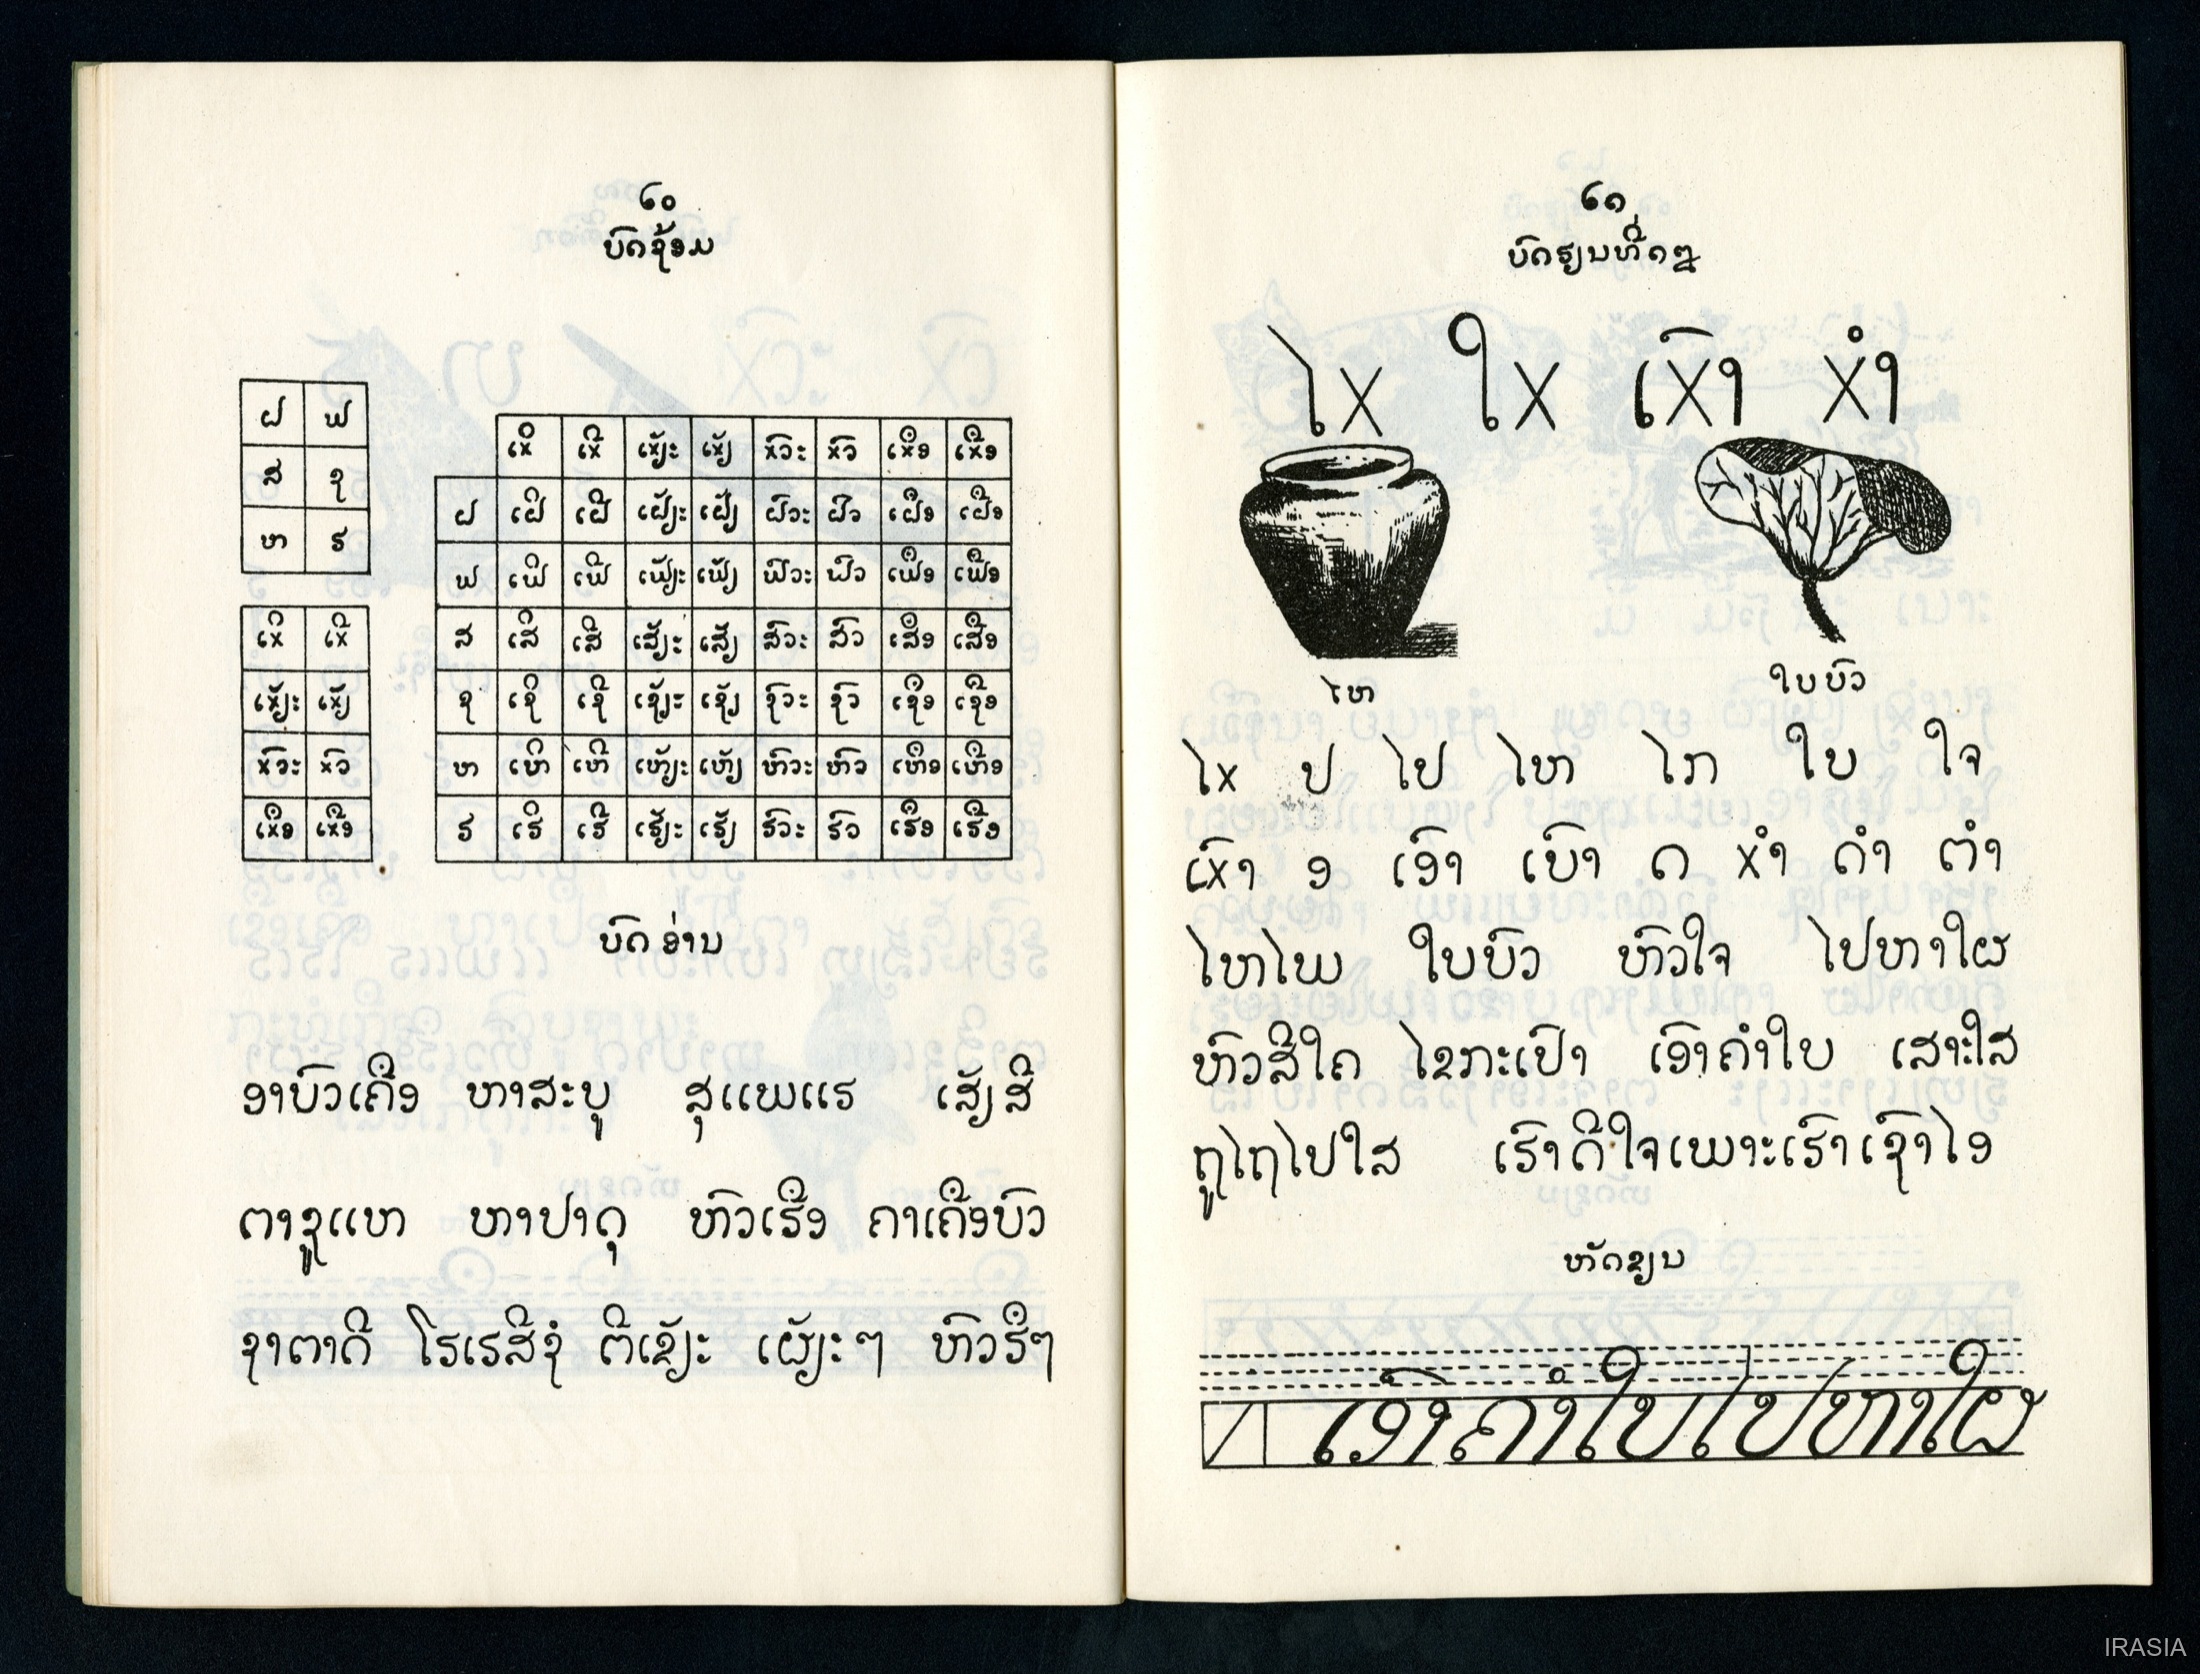 ໖໐
ບົດຊ້ອມ
ຝ ຟ
ສ ຊ
ຫ ຣ
ເxິ ເxີ
ເxັຽະ ເxັຽ
xົວະ xົວ
ເxຶອ ເxືອ
ເxິ ເxີ ເxັຽະ ເxັຽ xົວະ xົວ ເxຶອ ເxືອ
ຝ ເຝິ ເຝີ ເຝັຽະ ເຝັຽ ຝົວະ ຝົວ ເຝຶອ ເຝືອ
ຟ ເຟິ ເຟີ ເຟັຽະ ເຟັຽ ຟົວະ ຟົວ ເຟຶອ ເຟືອ
ສ ເສິ ເສີ ເສັຽະ ເສັຽ ສົວະ ສົວ ເສຶອ ເສືອ
ຊ ເຊິ ເຊີ ເຊັຽະ ເຊັຽ ຊົວະ ຊົວ ເຊຶອ ເຊືອ
ຫ ເຫິ ເຫີ ເຫັຽະ ເຫັຽ ຫົວະ ຫົວ ເຫຶອ ເຫືອ
ຣ ເຣິ ເຣີ ເຣັຽະ ເຣັຽ ຣົວະ ຣົວ ເຣຶອ ເຣືອ
ບົດອ່ານ
ອາບົວເຄືອ ຫາສະບູ ສຸແພແຣ ເສັຽສີ
ຕາງູແຫ ຫາປາດຸ ຫົວເຣືອ ຄາເຄືອບົວ
ຊາຕາດີ ໂຣເຣສີຊໍ ຕີເຂັຽະ ເຜັຽະໆ ຫົວຣືໆ
໖໑
ບົດຮຽນທີ່໑໘
ໄx ໃx ເxົາ xຳ
ໄຫ
ໃບບົວ
ໄx ປ ໄປ ໄຫ ໄກ ໃບ ໃຈ
ເxົາ ອ ເອົາ ເບົາ ດ xຳ ດຳ ຕຳ
ໄຫໄພ ໃບບົວ ຫົວໃຈ ໄປຫາໃຜ
ຫົວສີໃຄ ໄຂກະເປົາ ເອົາຄຳໃບ ເສາະໃສ
ຖູໄຖໄປໃສ ເຣົາດີໃຈເພາະເຣົາເຊົາໄອ
ຫັດຂຽນ
ເອົາຄຳໃບໄປຫາໃຜ
IRASIA